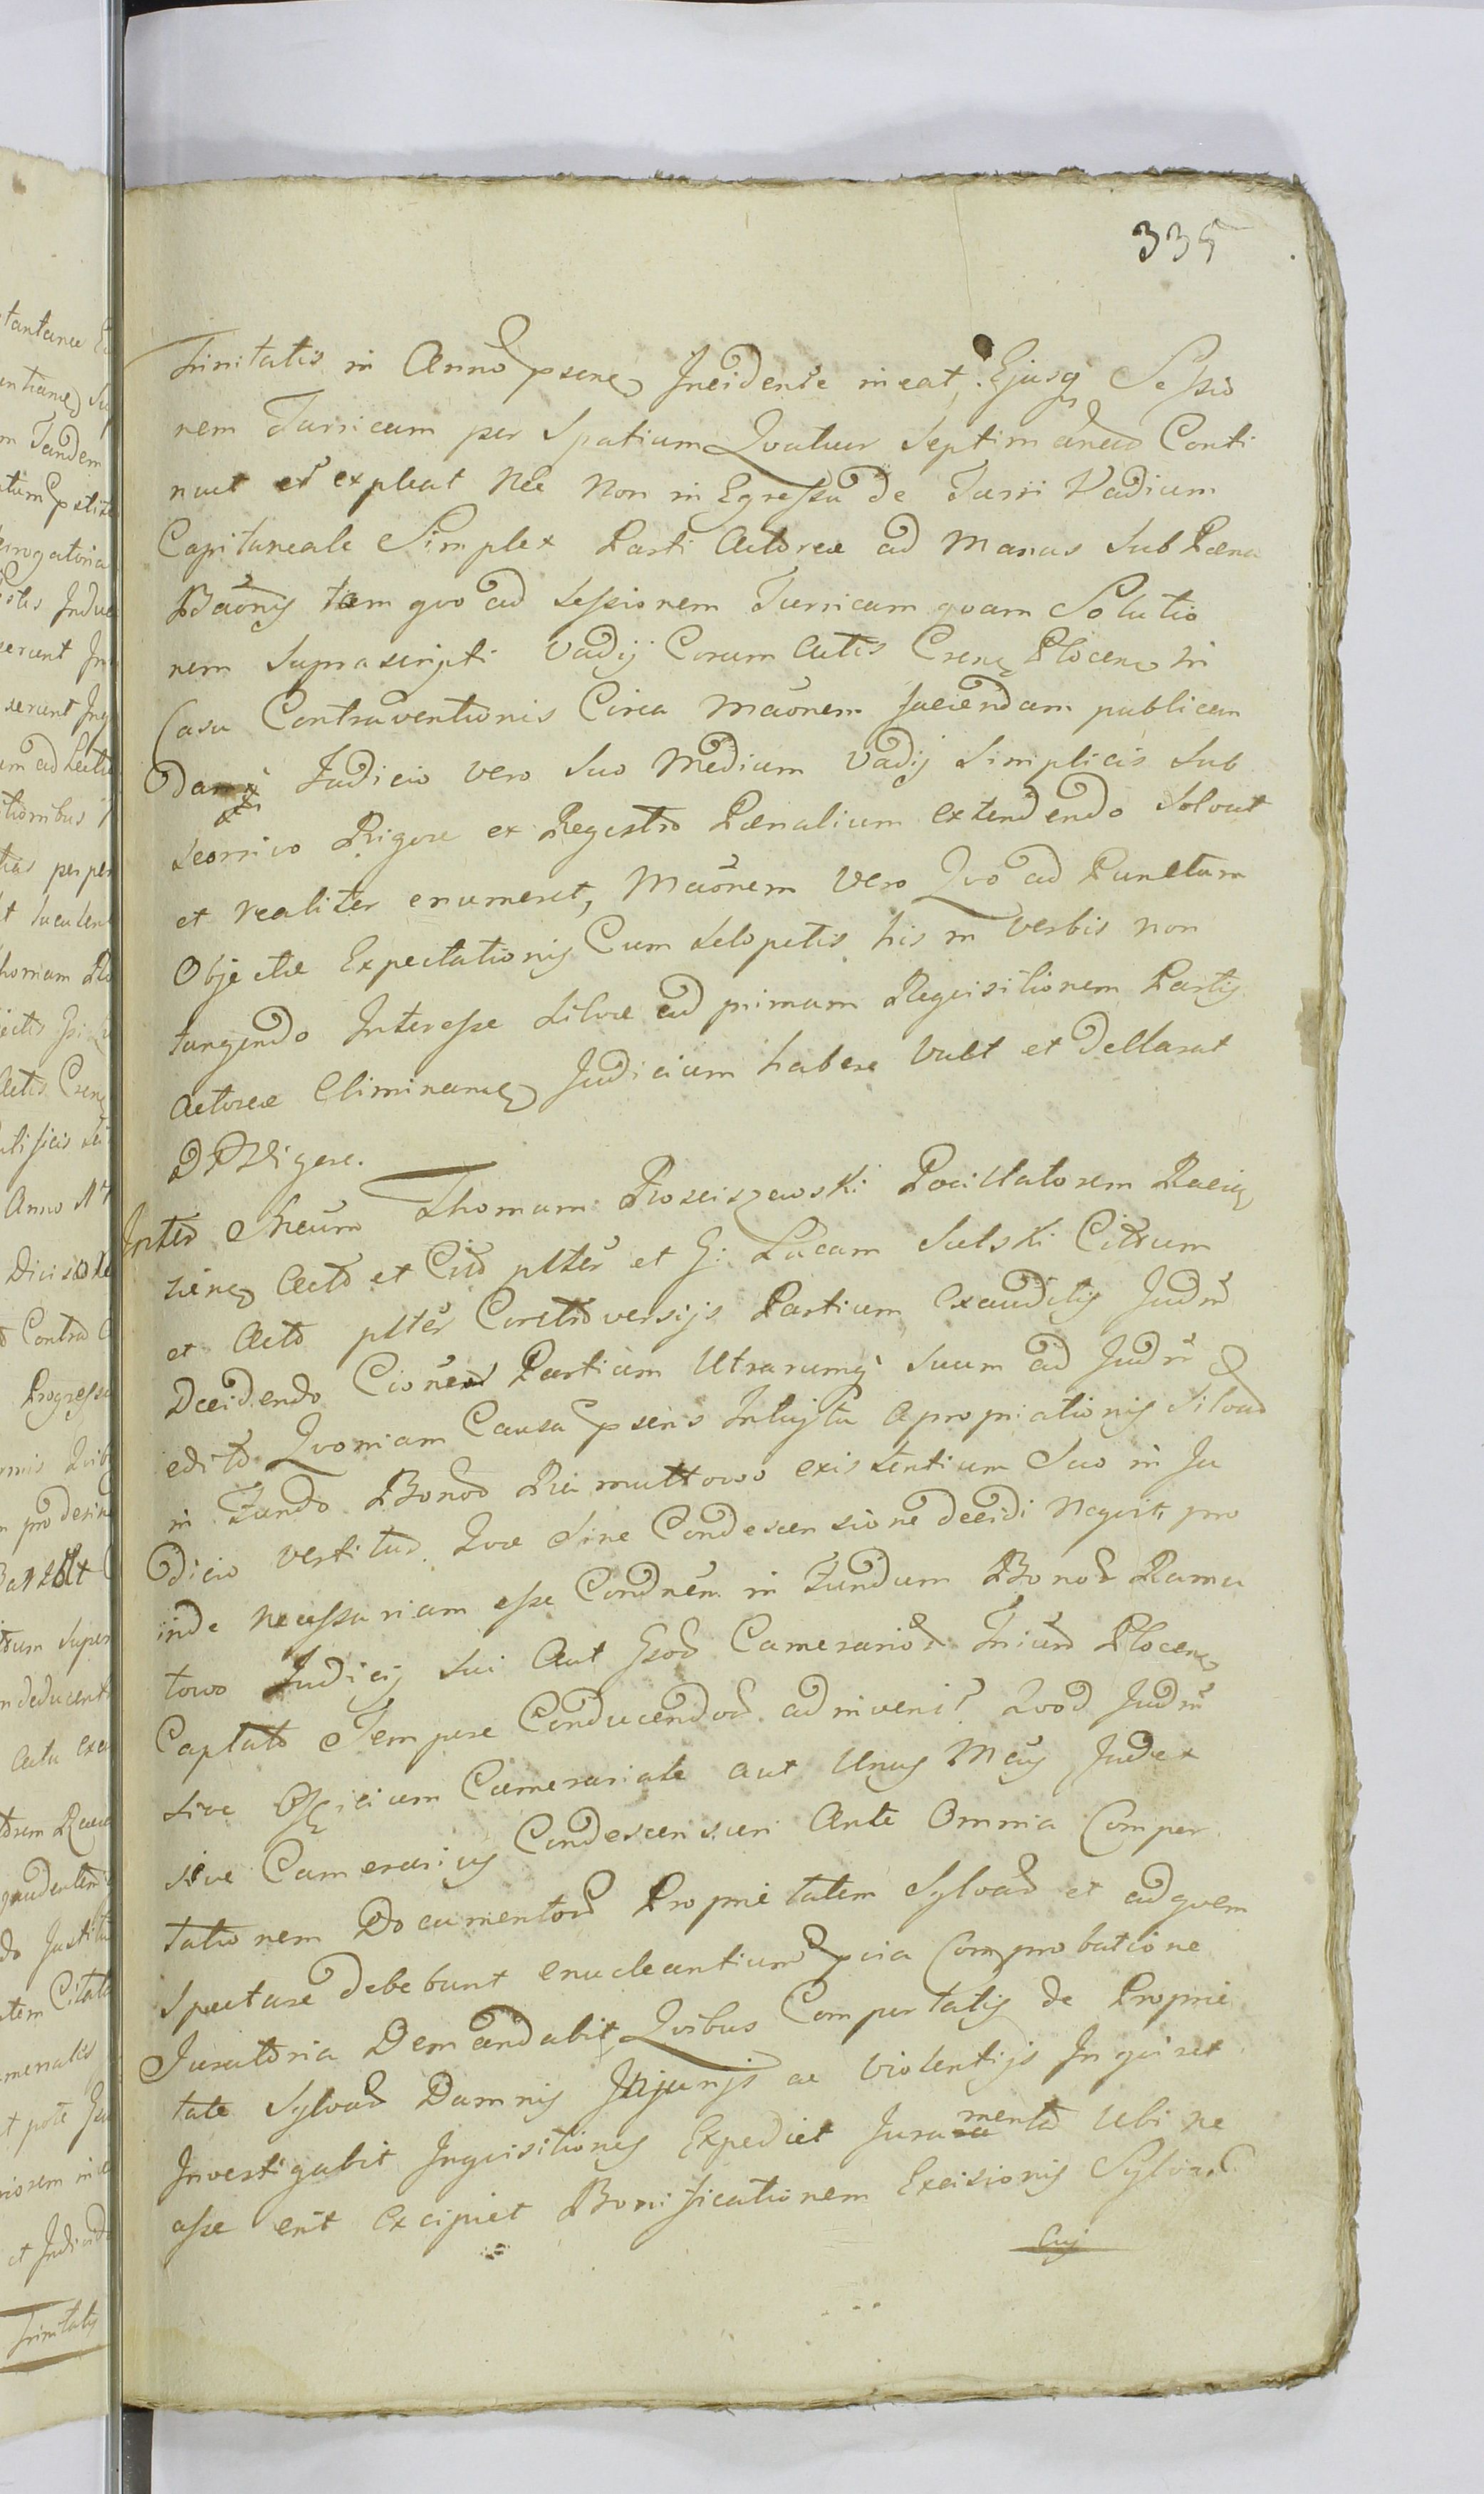 335
Trinitatis in Anno psene Incidente ineat, Ejusq Sessio
nem Turricam per Spatium Qvatuor Septimanas Conti
nuet et expleat nec non in Egressu de Turri Vadium
Capitaneale Simplex Parti Actorea ad Manus Sub Pæna
Baonis tam qvo ad Sessionem Turricam qvam Solutio
nem Suprascripti Vadij Coram Actis Crens Plocens in
Casu Contraventionis Circa Maonem faciendam publican
dam Judicio vero Suo Medium Vadij Simplicis Sub
Seorsivo Rigore ex Registro Pænalium extendendo Solvat
et realiter enumeret, Maonem vero Qvo ad Punctum
Objectæ Expectationis Cum Selopetis his in verbis non
tangendo Interesse Silvæ ad primam Reqvisitionem Partis
Actoreæ Eliminanæ Judicium habere vult et Dellarat
D P Vigore.
Inter Gneum Thomam Rosciszewski Pocillatorem Racią
ziens Acto et Cito plter et G: Lucam Sulski Citum
et Acto plter Controversijs Partium Exauditis Judm
Decidendo Cionem Partium Utrarumq Suum ad Judm
edito Qvoniam Causa psens Intuitu Apropriationis Silvar
in Fundo Bonor Ramuttowo existentium Suo in Ju
dicio vertitur. Qvæ Sine Condescensione decidi neqvit, pro
inde necessariam esse Condnem in Fundum Bonor Ramu
towo Judicij Sui Aut Gsor Camerarior Trium Plocens
Captato Tempore Conducendor adinvenit Qvod Judm
Sive Officium Camerariale aut Unus Meus Judex
Sive Camerarius Condescensuri Ante Omnia Compor
tationem Documentor Proprietatem Sylvar et ad qvem
Spectare debebunt enucleantium pvia Comprobatione
Juratoria Demandabit, Qvibus Comportatis de Proprie
tate Sylvar Damnis Injurijs ac Violentijs Inqviret
Investigabit Inqvisitiones Expediet Juramenta Ubi ne
cesse erit Excipiet Bonificationem Excisionis Sylvar
Cuj